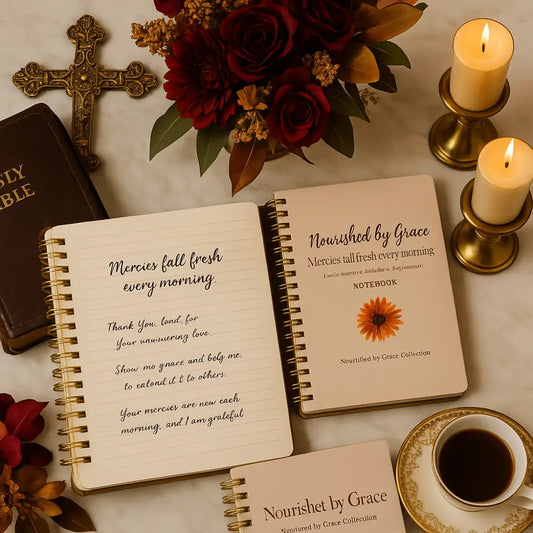 LY
BLE
Mercies fall fresh
every morning.
Thank You, lond, for
Your unwavering love.
Show mo gnace and belg me.
to eatond it t to others.
Your mercies are new each
morning, and I am grateful
Nourished by Grace
Mercies tall fresh every morning
NOTEBOOK
Nourtified by Grace Collection
Nourishet by Grace
Neytored by Grace Collection